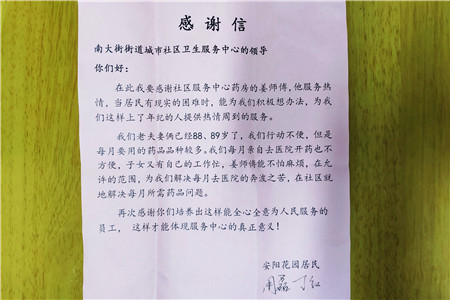 感谢信
南大街街道城市社区卫生服务中心的领导
你们好：
在此我要感谢社区服务中心药房的姜师傅，他服务热
情，当居民有现实的困难时，能为我们积极想办法，为我
们这样上了年纪的人提供热情周到的服务。
我们老夫妻俩已经88、89岁了，我们行动不便，但是
每月要用的药品品种较多。我们每月亲自去医院开药也不
方便，子女又有自己的工作忙，姜师傅能不怕麻烦，在允
许的范围，为我们解决每月去医院的奔波之苦，在社区就
地解决每月所需药品问题。
再次感谢你们培养出这样能全心全意为人民服务的
员工，这样才能体现服务中心的真正意义！
安阳花园居民